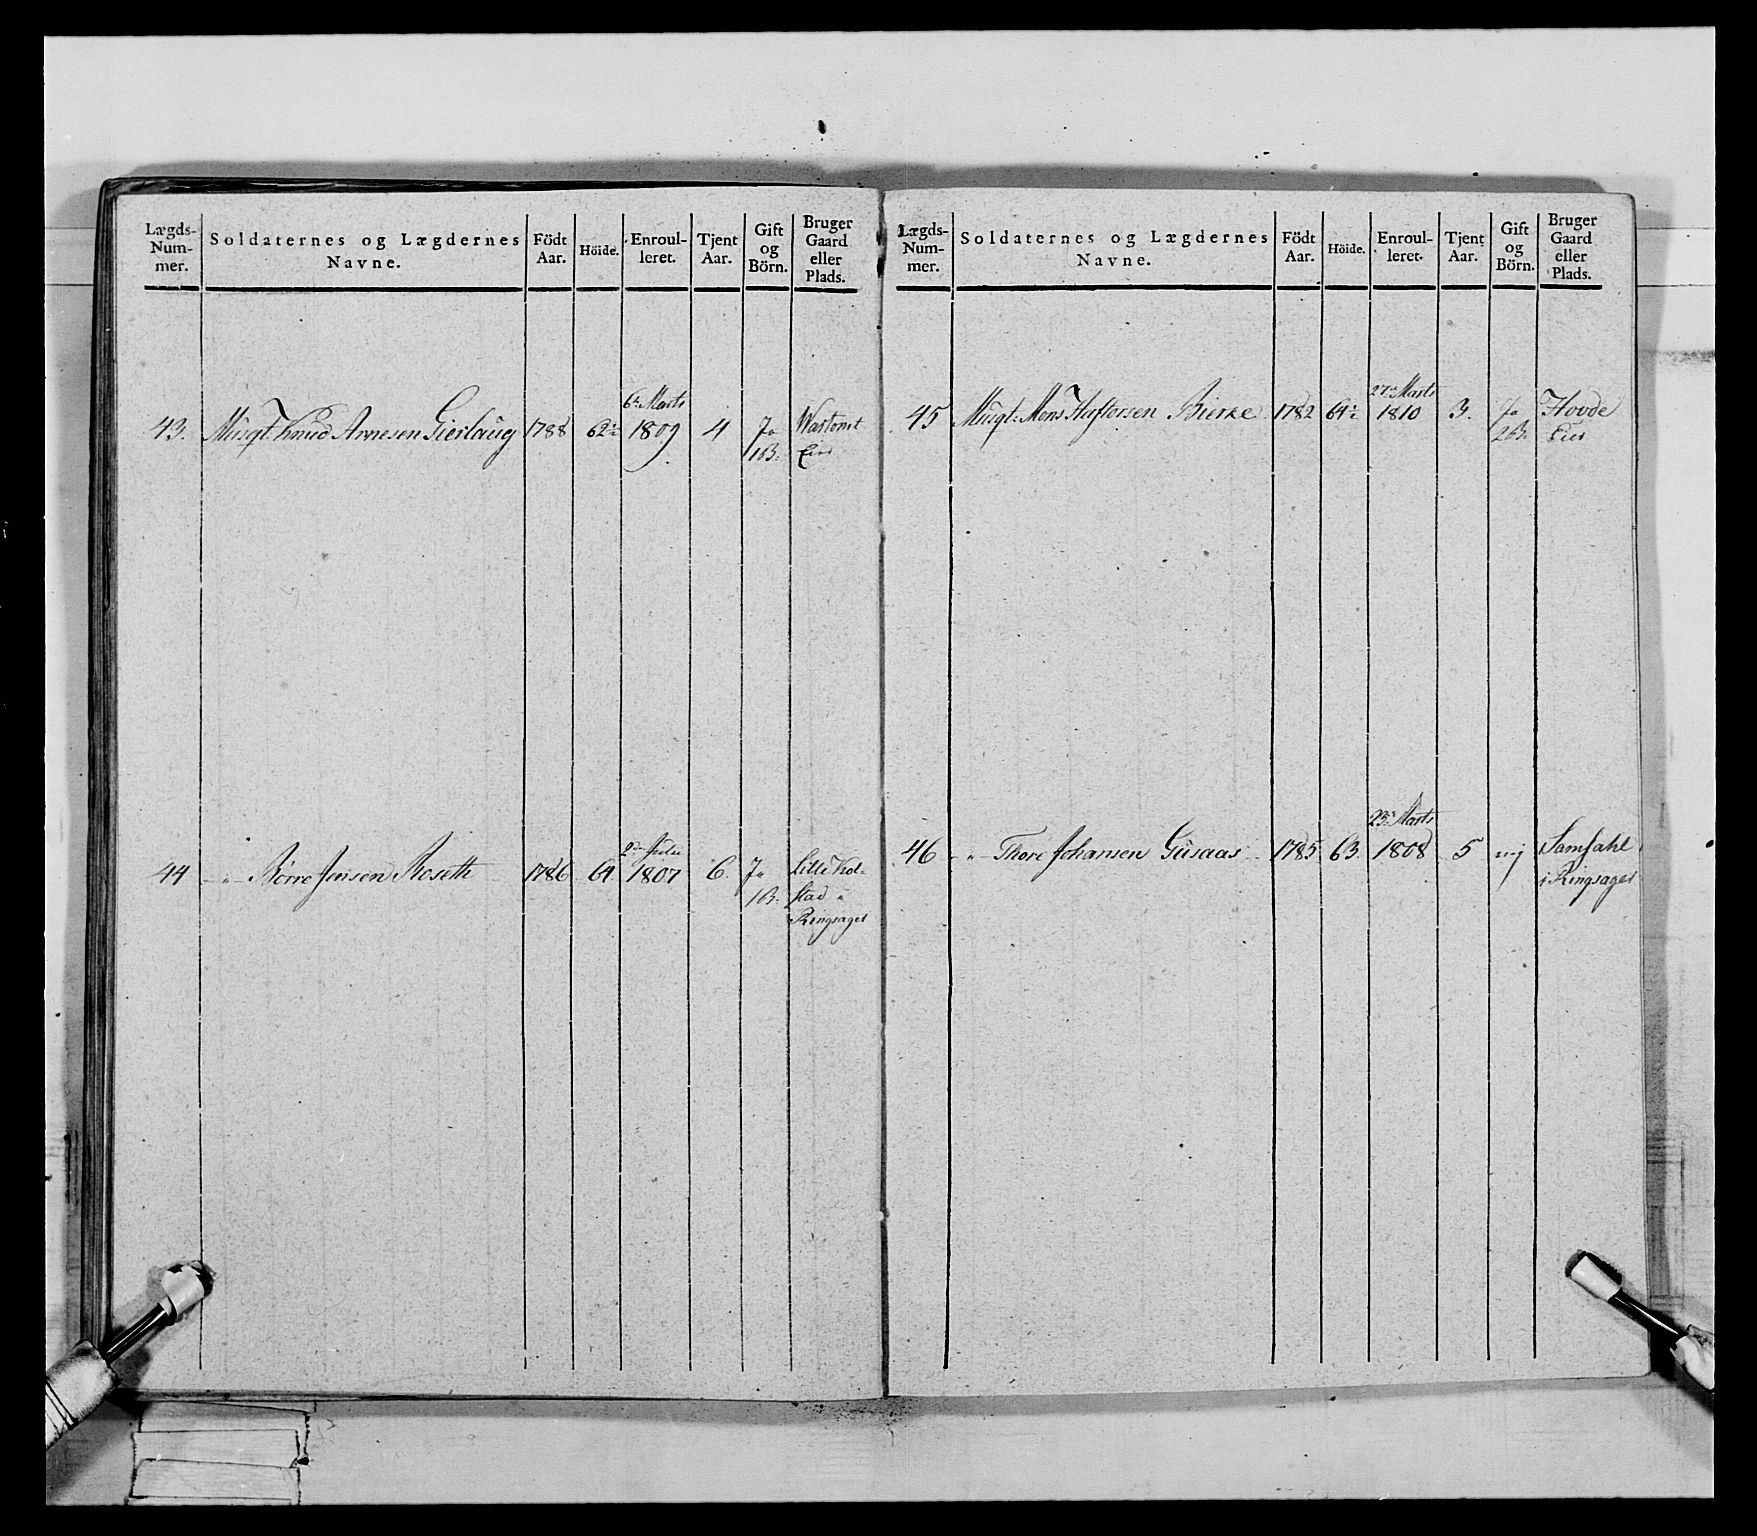 Lægds-Num-mer. Soldaternes og Lægdernes Navne. Födt Aar. Höide. Enroul-leret. Tjent Aar. Gift og Börn. Bruger Gaard eller Plads.
6te Marts
43. Musqt. Knud Arnesen Gierlaug 1788 62½ 1809 4 Ja
1 B. Eier
2den Julii
44 " Börre Jensen Roseth 1786 64 1807 6. Ja Lille Kol-
1 B. stad i
Ringsager
Lægds-Num-mer. Soldaternes og Lægdernes Navne. Födt Aar. Höide. Enroul-leret. Tjent Aar. Gift og Börn. Bruger Gaard eller Plads.
27de Marts
45 Musqt. Mons Haftorsen Bierke 1782 64½ 1810 3. Ja Hovde
2 B. Eier
23de Marts
46 " Thore Johansen Gusaas 1785 63. 1808 5 nej Samsahl
i Ringsager